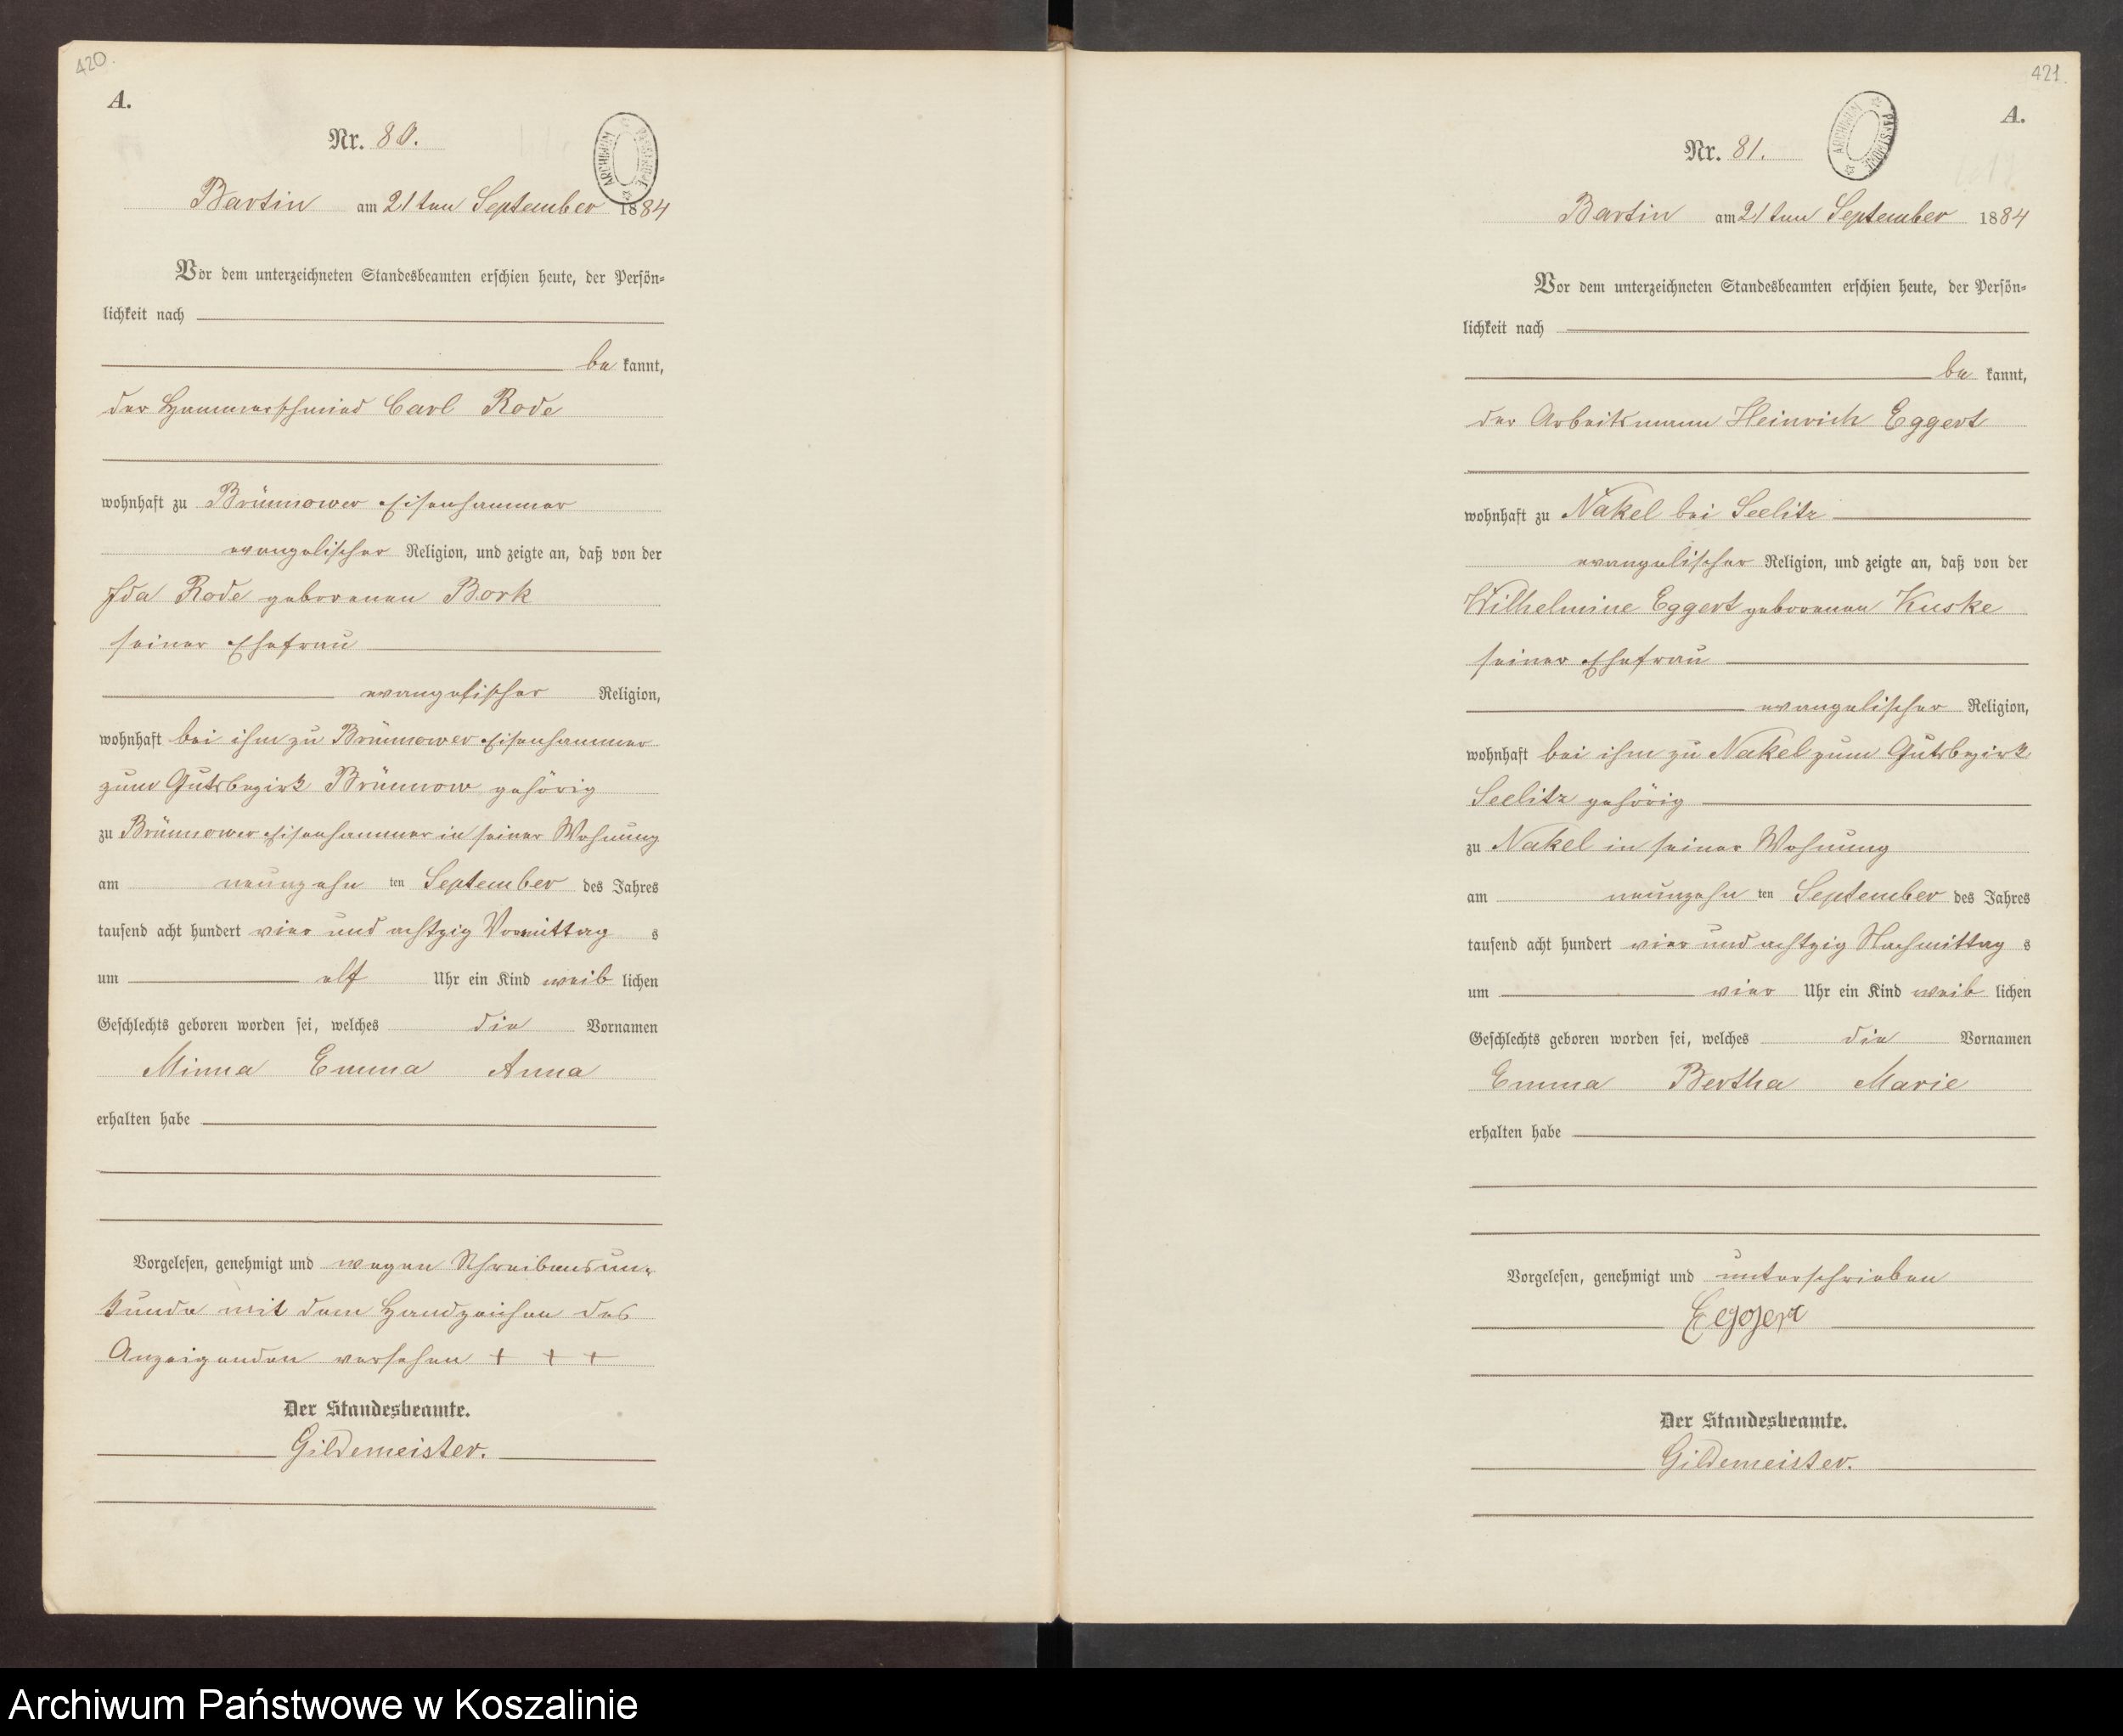 420.
A.
Nr. 80.
ARCHIWUM PAŃSTWOWE
Bartin am 21ten September 1884
Vor dem unterzeichneten Standesbeamten erschien heute, der Persön-
lichkeit nach
be kannt,
der Hammerschmied Carl Rode
wohnhaft zu Brünnower Eisenhammer
evangelischer Religion, und zeigte an, daß von der
Ida Rode geborenen Bork
seiner Ehefrau
evangelischer Religion,
wohnhaft bei ihm zu Brünnower Eisenhammer
zum Gutsbezirk Brünnow gehörig
zu Brünnower Eisenhammer in seiner Wohnung
am neunzehn ten September des Jahres
tausend acht hundert vier und achtzig Vormittag s
um elf Uhr ein Kind weib lichen
Geschlechts geboren worden sei, welches die Vornamen
Minna Emma Anna
erhalten habe
Vorgelesen, genehmigt und wegen Schreibensun-
kunde mit dem Handzeichen des
Anzeigenden versehen + + +
Der Standesbeamte.
Gildemeister.
421.
A.
Nr. 81.
ARCHIWUM PAŃSTWOWE
Bartin am 21ten September 1884
Vor dem unterzeichneten Standesbeamten erschien heute, der Persön-
lichkeit nach
be kannt,
der Arbeitsmann Heinrich Eggert
wohnhaft zu Nakel bei Seelitz
evangelischer Religion, und zeigte an, daß von der
Wilhelmine Eggert geborenen Kuske
seiner Ehefrau
evangelischer Religion,
wohnhaft bei ihm zu Nakel zum Gutsbezirk
Seelitz gehörig
zu Nakel in seiner Wohnung
am neunzehn ten September des Jahres
tausend acht hundert vier und achtzig Nachmittag s
um vier Uhr ein Kind weib lichen
Geschlechts geboren worden sei, welches die Vornamen
Emma Bertha Marie
erhalten habe
Vorgelesen, genehmigt und unterschrieben
Eggert
Der Standesbeamte.
Gildemeister.
Archiwum Państwowe w Koszalinie